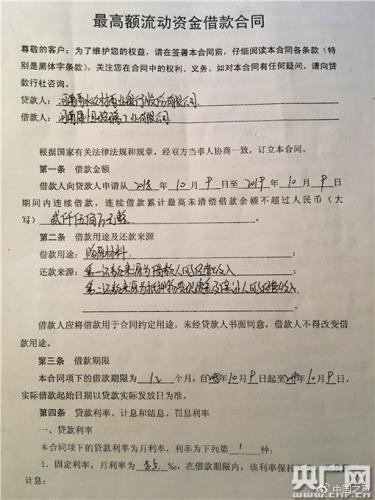 最高额流动资金借款合同
尊敬的客户：为了维护您的权益，请在签署本合同前，仔细阅读本合同各条款（特
别是黑体字条款），关注您在合同中的权利、义务，如对本合同有任何疑问，请向贷
款行社咨询。
贷款人：河南 农村商业银行股份有限公司
借款人：河南 工业有限公司
根据国家有关法律法规和规章，经双方当事人协商一致，订立本合同。
第一条 借款金额
借款人向贷款人申请从2018年10月9日至2019年10月9日
期间内连续借款，连续借款累计最高未清偿借款余额不超过人民币（大
写）贰仟伍佰万元整
第二条 借款用途及还款来源
借款用途：购原材料
还款来源：第一还款来源为借款人网络经营收入
第二还款来源为抵押物变现价值及保证人 经营收入
借款人应将借款用于合同约定用途，未经贷款人书面同意，借款人不得改变借
款用途。
第三条 借款期限
本合同项下的借款期限为12个月，自2018年10月9日起至2019年10月9日，
实际借款起始日期以贷款实际发放日为准。
第四条 贷款利率，计息和结息，罚息利率
一、贷款利率
本合同项下的贷款利率为月利率，利率为下列第1种：
1．固定利率，月利率为 ‰，在借款期限内，该利率保持
计息：
央广网
www.cnr.cn
@中国之声